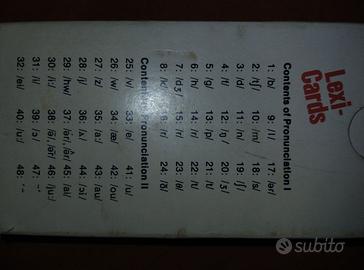 Lexi-
Cards
Contents of Pronunciation I
1: /b/ 9: /l/ 17: /ər/
2: /tʃ/ 10: /m/ 18: /s/
3: /d/ 11: /n/ 19: /ʃ/
4: /f/ 12: /ŋ/ 20: /ʒ/
5: /g/ 13: /p/ 21: /t/
6: /h/ 14: /r/ 22: /t/
7: /dʒ/ 15: /r/ 23: /θ/
8: /k/ 16: /r/ 24: /ð/
Pronunciation II
25: /v/ 33: /e/ 41: /u/
26: /w/ 34: /æ/ 42: /ou/
27: /z/ 35: /a:/ 43: /au/
28: /j/ 36: /ʌ/ 44: /ɔi/
29: /hw/ 37: 45: /ai/
30: /i:/ 38: 46: /ju:/
31: /i/ 39: /ɔ/ 47:
32: /ei/ 40: /u:/ 48:
subito